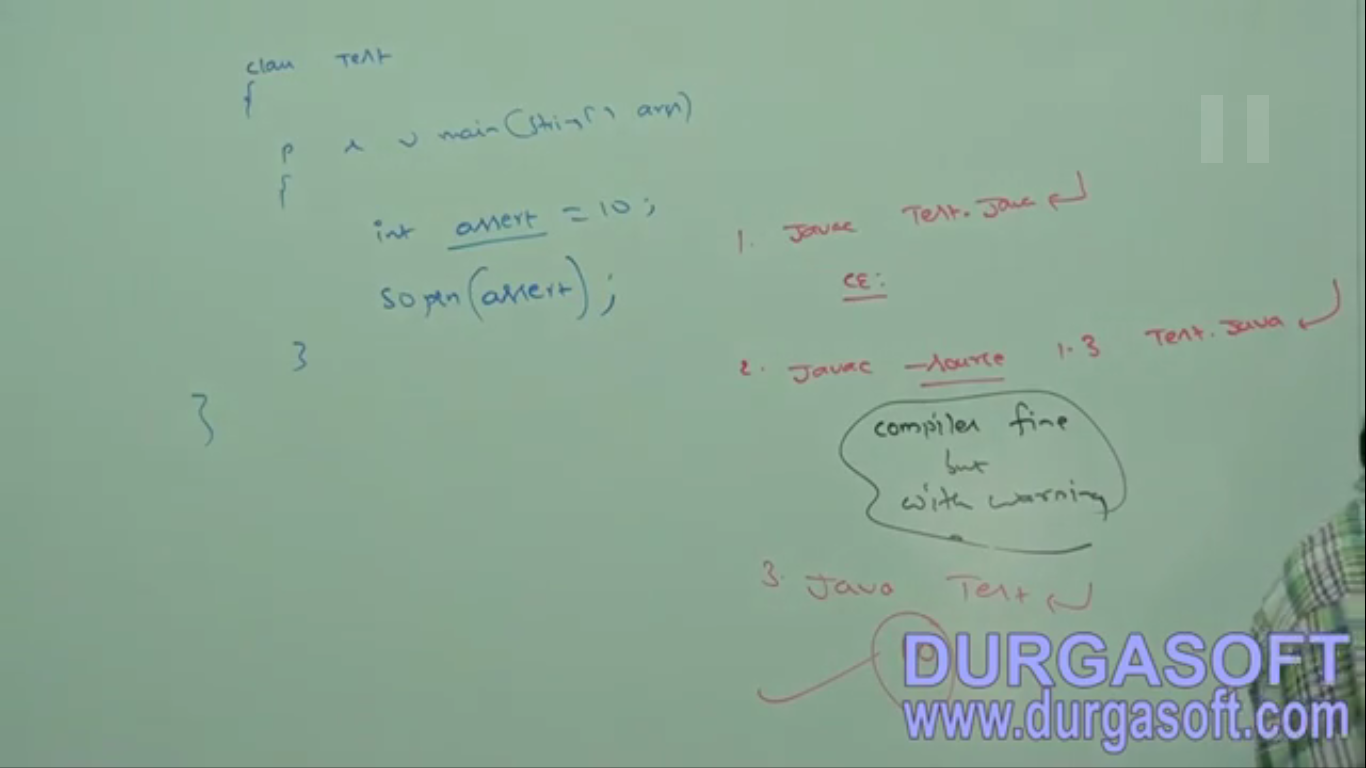 class Test
{
p s v main(String[] args)
{
int assert = 10;
sopln(assert);
}
}
1. Javac Test.Java
CE:
2. Javac -source 1.3 Test.Java
compiles fine
but
with warning
3. Java Test
10
DURGASOFT
www.durgasoft.com